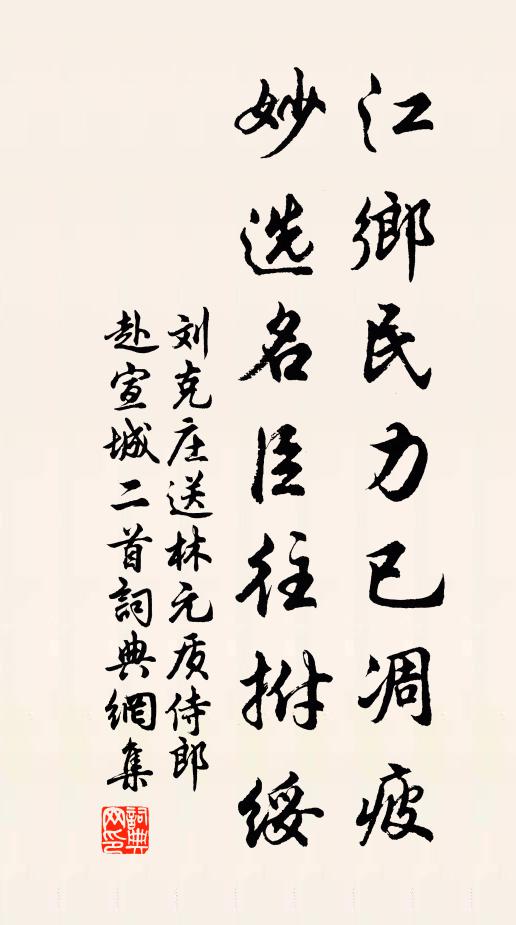 江鄉民力已凋疲
妙选名臣往拊綏
刘克庄送林元质侍郎
赴宣城二首詞典網集
詞典
网印